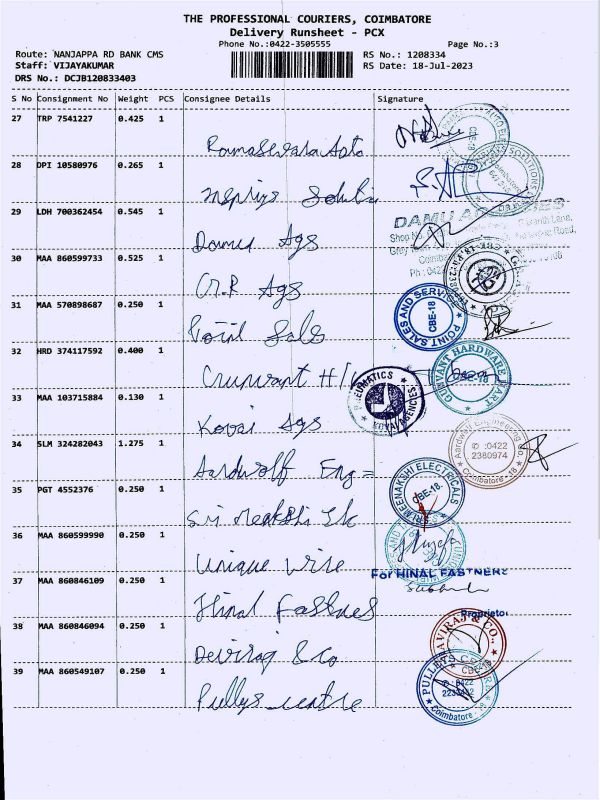 THE PROFESSIONAL COURIERS, COIMBATORE
Delivery Runsheet - PCX
Phone No.:0422-3505555 Page No.:3
Route: NANJAPPA RD BANK CMS RS No.: 1208334
Staff: VIJAYAKUMAR RS Date: 18-Jul-2023
DRS No.: DCJB120833403
S No Consignment No Weight PCS Consignee Details Signature
27 TRP 7541227 0.425 1
28 DPI 10580976 0.265 1
SOLUTIONS
29 LDH 700362454 0.545 1
DAMU
Shop No.
Road,
Damu Ags
30 MAA 860599733 0.525 1
G.R Ags
31 MAA 570898687 0.250 1
POINT SALES AND SERVICE
CBE-18
Point Sals
32 HRD 374117592 0.400 1
GUNVANT HARDWARE MART
CBE-18
33 MAA 103715884 0.130 1
PNEUMATICS
KOVAI AGENCIES
Kovai Ags
34 SLM 324282043 1.275 1
Aardwolf Engineering
0422
2380974
Coimbatore-18
Aardwolf Eng =
35 PGT 4552376 0.250 1
SRI MEENAKSHI ELECTRICALS
CBE-18.
36 MAA 860599990 0.250 1
Unique Wire
37 MAA 860846109 0.250 1
For HINAL FASTNERS
Proprietor
Hinal
38 MAA 860846094 0.250 1
& CO.,
CBE-18
& Co
39 MAA 860549107 0.250 1
PULLEYS CENTRE
0422
Coimbatore - 18
Pullys centre